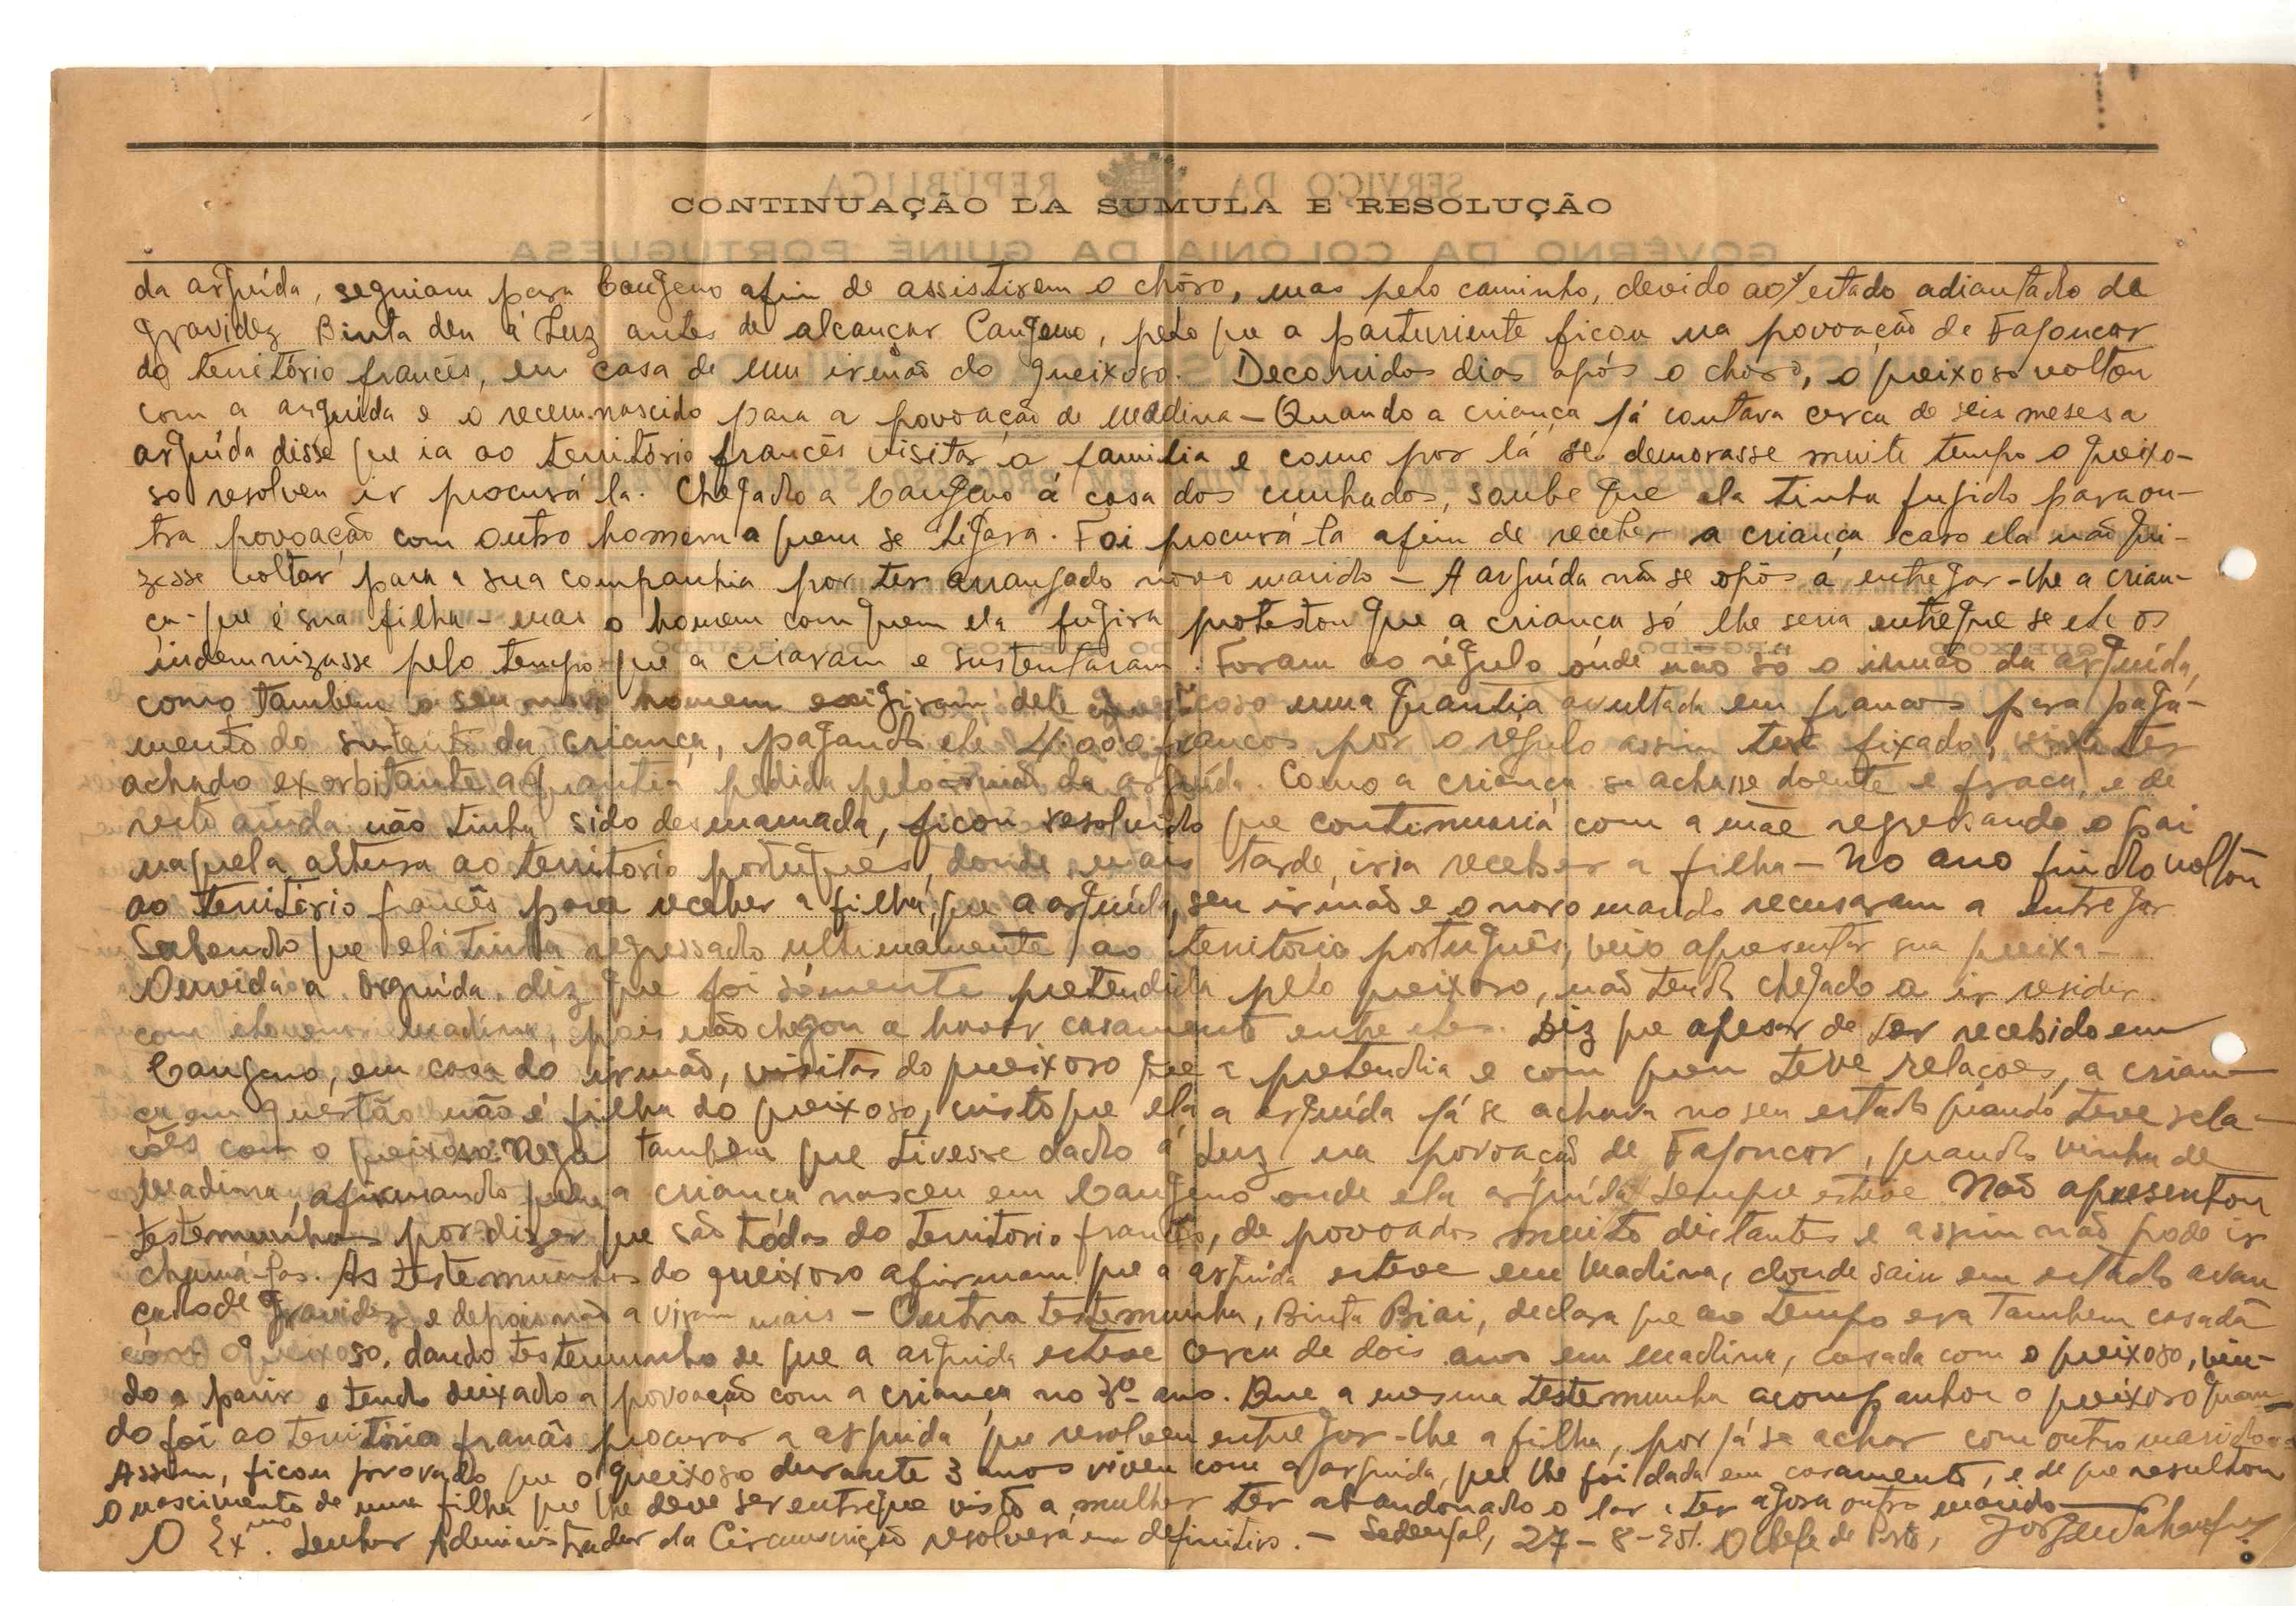 CONTINUAÇÃO DA SUMULA E RESOLUÇÃO
da arguída, seguiam para Canjeno afim de assistirem o chôro, mas pelo caminho, devido ao estado adiantado de
gravidez Binta deu á Luz antes de alcançar Canjeno, pelo que a parturiente ficou na povoação de Fajoncor
do território francês, em casa de um irmão do queixoso. Decorridos dias após o chôro, o queixoso voltou
com a arguída e o recem-nascido para a povoação de Madina — Quando a criança já contava cerca de seis meses a
arguída disse que ia ao território francês visitar a familia e como por lá se demorasse muito tempo o queixo-
so resolveu ir procurá-la. Chegado a Canjeno á casa dos cunhados, soube que ela tinha fugido para ou-
tra povoação com outro homem a quem se ligara. Foi procurá-la afim de receber a criança caso ela não qui-
zesse voltar para a sua companhia por ter arranjado novo marido — A arguída não se opôs á entregar-lhe a crian-
ça - que é sua filha - mas o homem com quem ela fugira protestou que a criança só lhe seria entregue se ele os
indemnizasse pelo tempo que a criaram e sustentaram. Foram ao régulo onde não so o irmão da arguída,
como tambem o seu novo homem exigiram dele queixoso uma quantia avultada em francos para paga-
mento do sustento da criança, pagando ele 4.000 francos por o régulo assim ter fixado, ter
achado exorbitante a quantia pedida pelo irmão da arguída. Como a criança se achasse doente e fraca, e de
resto ainda não tinha sido desmamada, ficou resolvido que continuaria com a mãe regressando o pai
naquela altura ao território português, donde mais tarde, iria receber a filha — No ano findo voltou
ao território francês para receber a filha, que a arguída, seu irmão e o novo marido recusaram a entregar.
Sabendo que ela tinha regressado ultimamente ao território português, veio apresentar sua queixa —
Ouvida a arguída, diz que foi sómente pretendida pelo queixoso, não tendo chegado a ir residir
com ele em Madina, pois não chegou a haver casamento entre eles. Diz que apesar de ter recebido em
Canjeno, em casa do irmão, visitas do queixoso que a pretendia e com quem teve relações, a crian-
ça em questão não é filha do queixoso, visto que ela a arguída já se achava no seu estado quando teve rela-
ções com o queixoso. Nega tambem que tivesse dado á Luz na povoação de Fajoncor, quando vinha de
Madina, afirmando que a criança nasceu em Canjeno onde ela arguída sempre esteve Não apresentou
testemunhas por dizer que são tôdas do território francês, de povoados muito distantes e assim não pode ir
chamá-las. As testemunhas do queixoso afirmam que a arguída esteve em Madina, donde saiu em estado avan
çado de gravidez e depois não a viram mais — Outra testemunha, Binta Biai, declara que ao tempo era tambem casada
com o queixoso, dando testemunho de que a arguida esteve cerca de dois anos em Madina, casada com o queixoso, vin-
do a parir e tendo deixado a povoação com a criança no 3º ano. Que a mesma testemunha acompanhou o queixoso quan-
do foi ao território francês procurar a arguida que resolveu entregar-lhe a filha, por já se achar com outro marido
Assim, ficou provado que o queixoso durante 3 anos viveu com a arguida, que lhe foi dada em casamento, e de que resultou
o nascimento de uma filha que lhe deve ser entregue visto a mulher ter abandonado o lar e ter agora outro marido
O Exmo. Senhor Administrador da Circunscrição resolverá em definitivo. — Sedengal, 27-8-951. O Chefe de Posto,